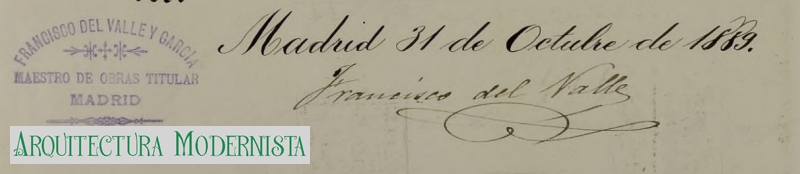 FRANCISCO DEL VALLE Y GARCÍA
MAESTRO DE OBRAS TITULAR
MADRID
Madrid 31 de Octubre de 1889.
Francisco del Valle
ARQUITECTURA MODERNISTA